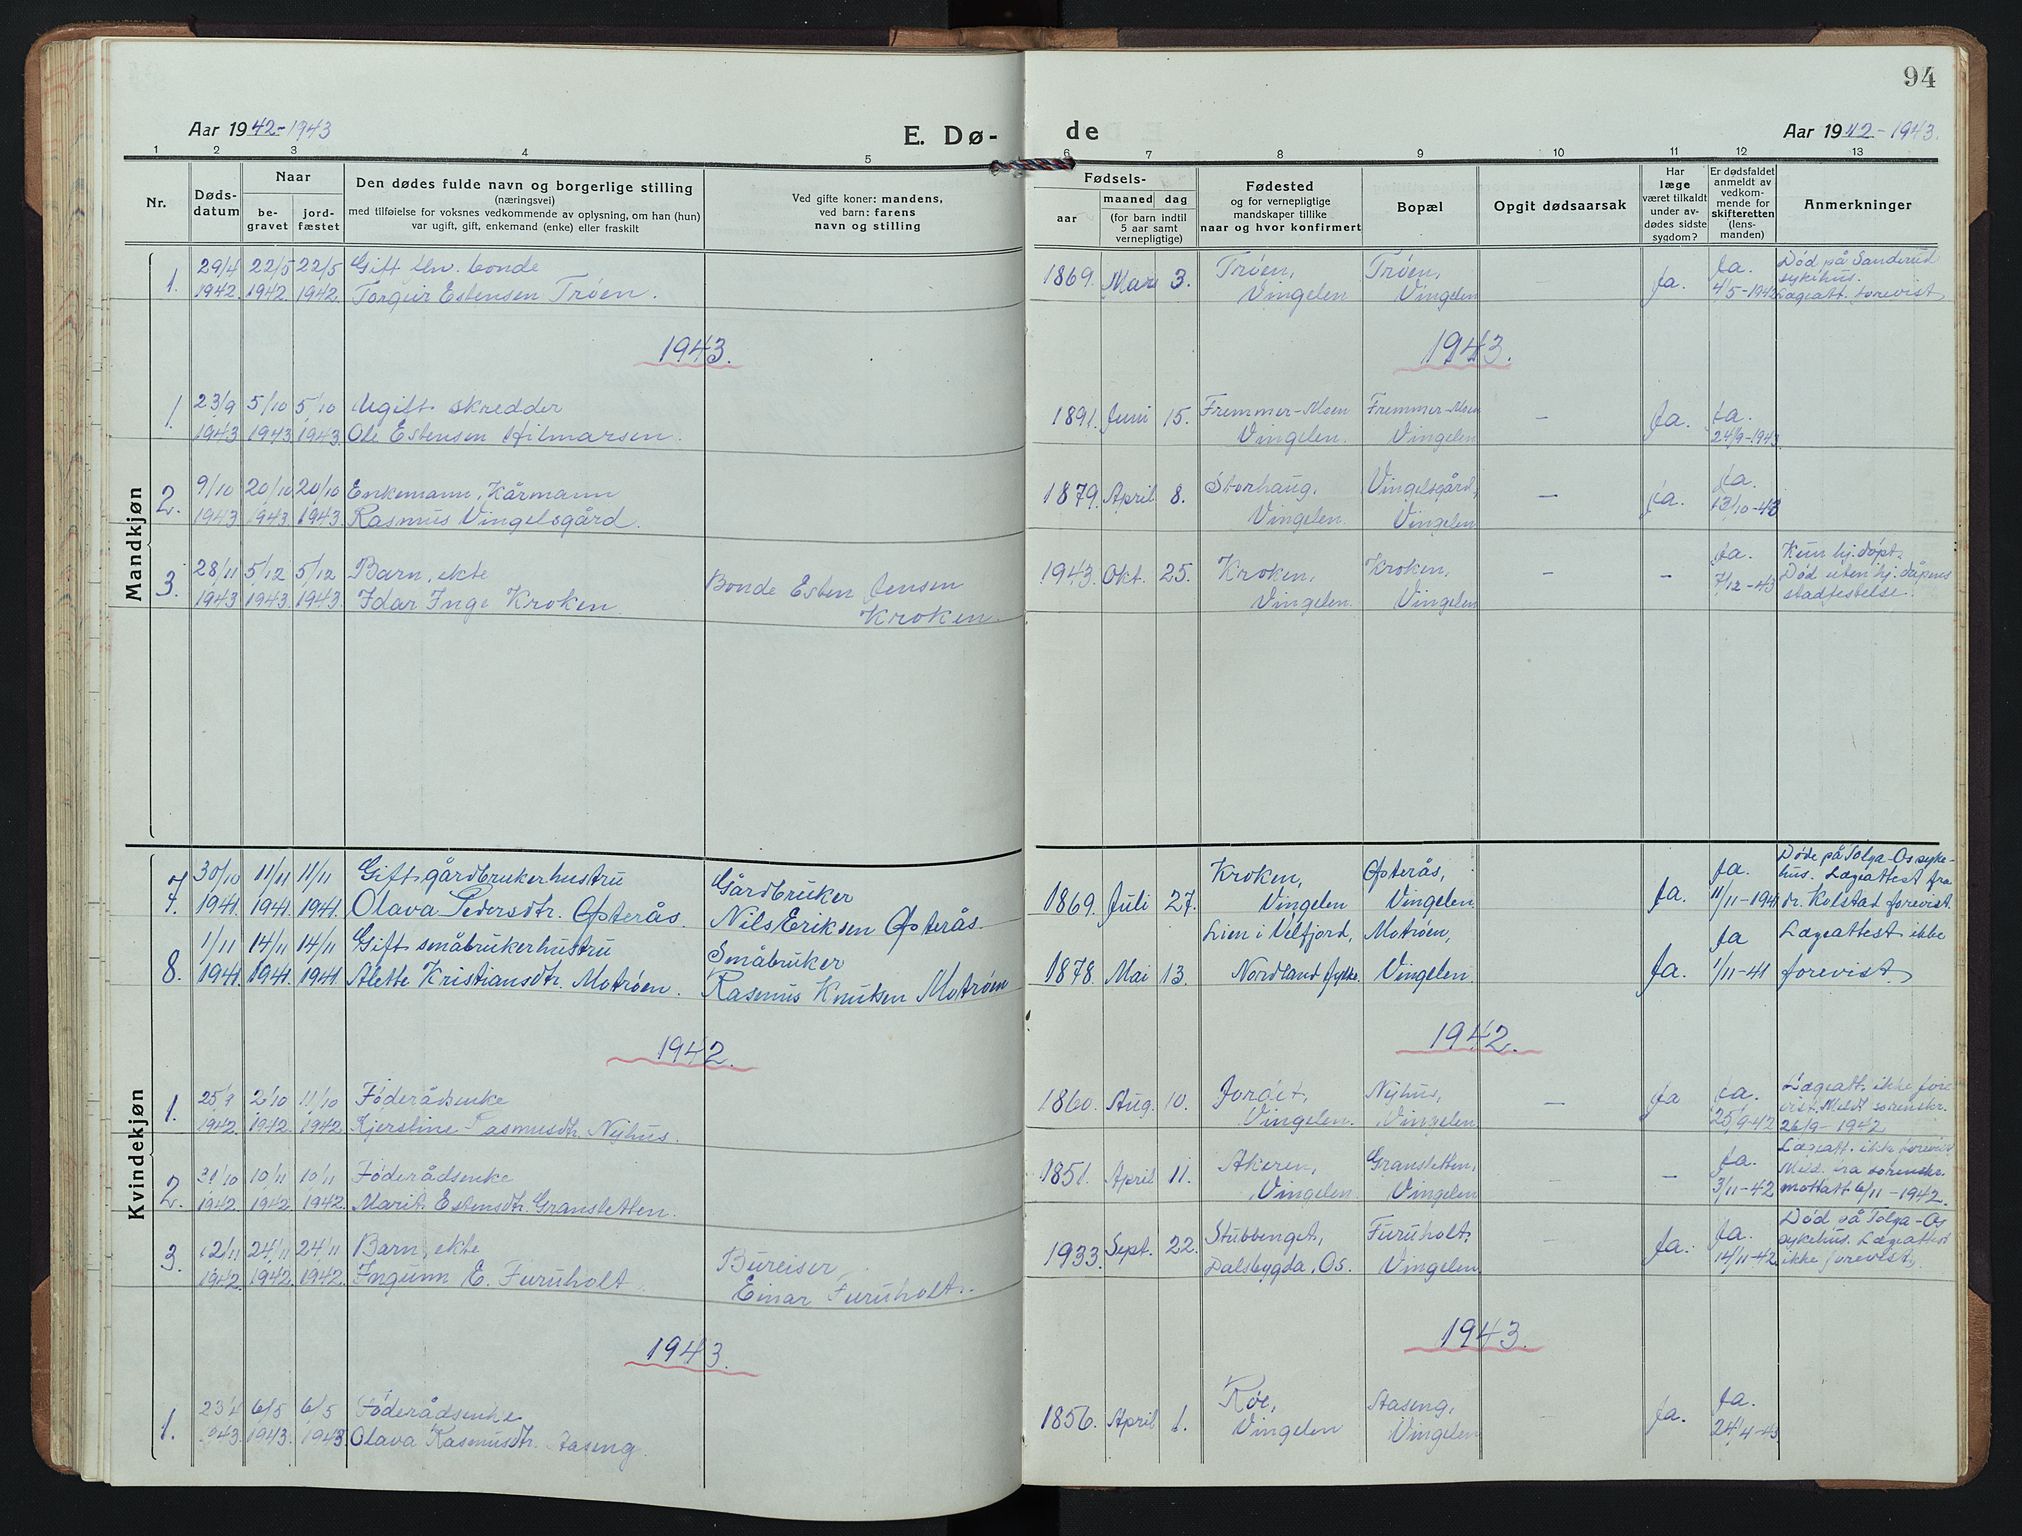 94
Aar 1942-1943
E. Dø-
de
Aar 1942-1943.
1 2 3 4 5 6 7 8 9 10 11 12 13
Nr.
Døds-
datum
Naar
be-
gravet
jord-
fæstet
Den dødes fulde navn og borgerlige stilling
(næringsvei)
med tilføielse for voksnes vedkommende av oplysning, om han (hun)
var ugift, gift, enkemand (enke) eller fraskilt
Ved gifte koner: mandens,
ved barn: farens
navn og stilling
Fødsels-
aar
maaned dag
(for barn indtil
5 aar samt
vernepligtige)
Fødested
og for vernepligtige
mandskaper tillike
naar og hvor konfirmert
Bopæl
Opgit dødsaarsak
Har
læge
været tilkaldt
under av-
dødes sidste
sygdom?
Er dødsfaldet
anmeldt av
vedkom-
mende for
skifteretten
(lens-
manden)
Anmerkninger
Mandkjøn
1. 29/4 22/5 22/5 Gift bonde Trøen, Trøen, Ja. Død på Sanderud
1942 1942 1942 Torgeir Estensen Trøen. 1869. Mars 3. Vingelen Vingelen — Ja. 4/5-1942 sykehus.
Lægeatt. forevist
1943. 1943.
1. 23/9 5/10 5/10 Ugift skredder 1891. Juni 15. Fremmer-Moen Fremmer-Moen — Ja. Ja.
1943 1943 1943 Ole Estensen Hilmarsen. Vingelen. Vingelen 24/9-1943
2. 9/10 20/10 20/10 Enkemann, Kårmann 1879. April 8. Storhaug, Vingelsgård, — Ja. Ja.
1943 1943 1943. Rasmus Vingelsgård. Vingelen. Vingelen 13/10-43
3. 28/11 5/12 5/12 Barn, ekte Bonde Esten Jensen 1943. Okt. 25. Kroken, Kroken, — — Ja. Kun hj. døpt.
1943 1943 1943. Idar Inge Kroken. Kroken. Vingelen. Vingelen 7/12-43 Død uten hj. dåpens
stadfestelse.
Kvindekjøn
7. 30/10 11/11 11/11 Gift gårdbrukerhustru Gårdbruker Kroken, Østerås, Ja. Døde på Tolga-Os syke-
1941 1941 1941. Olava Pedersdtr. Østerås. Nils Eriksen Østerås. 1869. Juli 27. Vingelen Vingelen. — Ja. 11/11-1941 hus. Lægeattest fra
dr. Kolstad forevist.
8. 1/11 14/11 14/11 Gift småbrukerhustru Småbruker Lien i Velfjord, Motrøen, Ja Lægeattest ikke
1941 1941 1941 Alette Kristiansdtr. Motrøen. Rasmus Knutsen Motrøen 1878. Mai 13. Nordland fylke. Vingelen. — Ja. 1/11-41 forevist.
1942. 1942.
1. 25/9 2/10 11/10 Føderådsenke 1860. Aug. 10. Jordet, Nyhus, — Ja Ja. Lægeatt. ikke fore-
1942. 1942. 1942 Kjerstine Rasmusdtr. Nyhus. Vingelen. Vingelen 25/9-42 vist. Meldt sorenskr.
26/9-1942
2. 31/10 10/11 10/11 Føderådsenke 1851. April 11. Akeren, Gransletten, — — Ja. Lægeatt. ikke forevist
1942 1942 1942. Marit Estensdtr. Gransletten. Vingelen. Vingelen 3/11-42 Meld. fra sorenskr.
mottatt 6/11-1942.
3. 12/11 24/11 24/11 Barn, ekte Bureiser 1933. Sept. 22. Stubbenget, Furuholt, — Ja. Ja. Død på Tolga-Os
1942 1942 1942 Ingunn E. Furuholt. Einar Furuholt. Dalsbygda, Os. Vingelen. 14/11-42 sykehus. Lægeattest
ikke forevist.
1943. 1943.
1. 23/4 6/5 6/5 Føderådsenke 1856. April 1. Røe, Aaseng, — Ja. Ja.
1943. 1943. 1943 Olava Rasmusdtr. Aaseng. Vingelen Vingelen 24/4-43